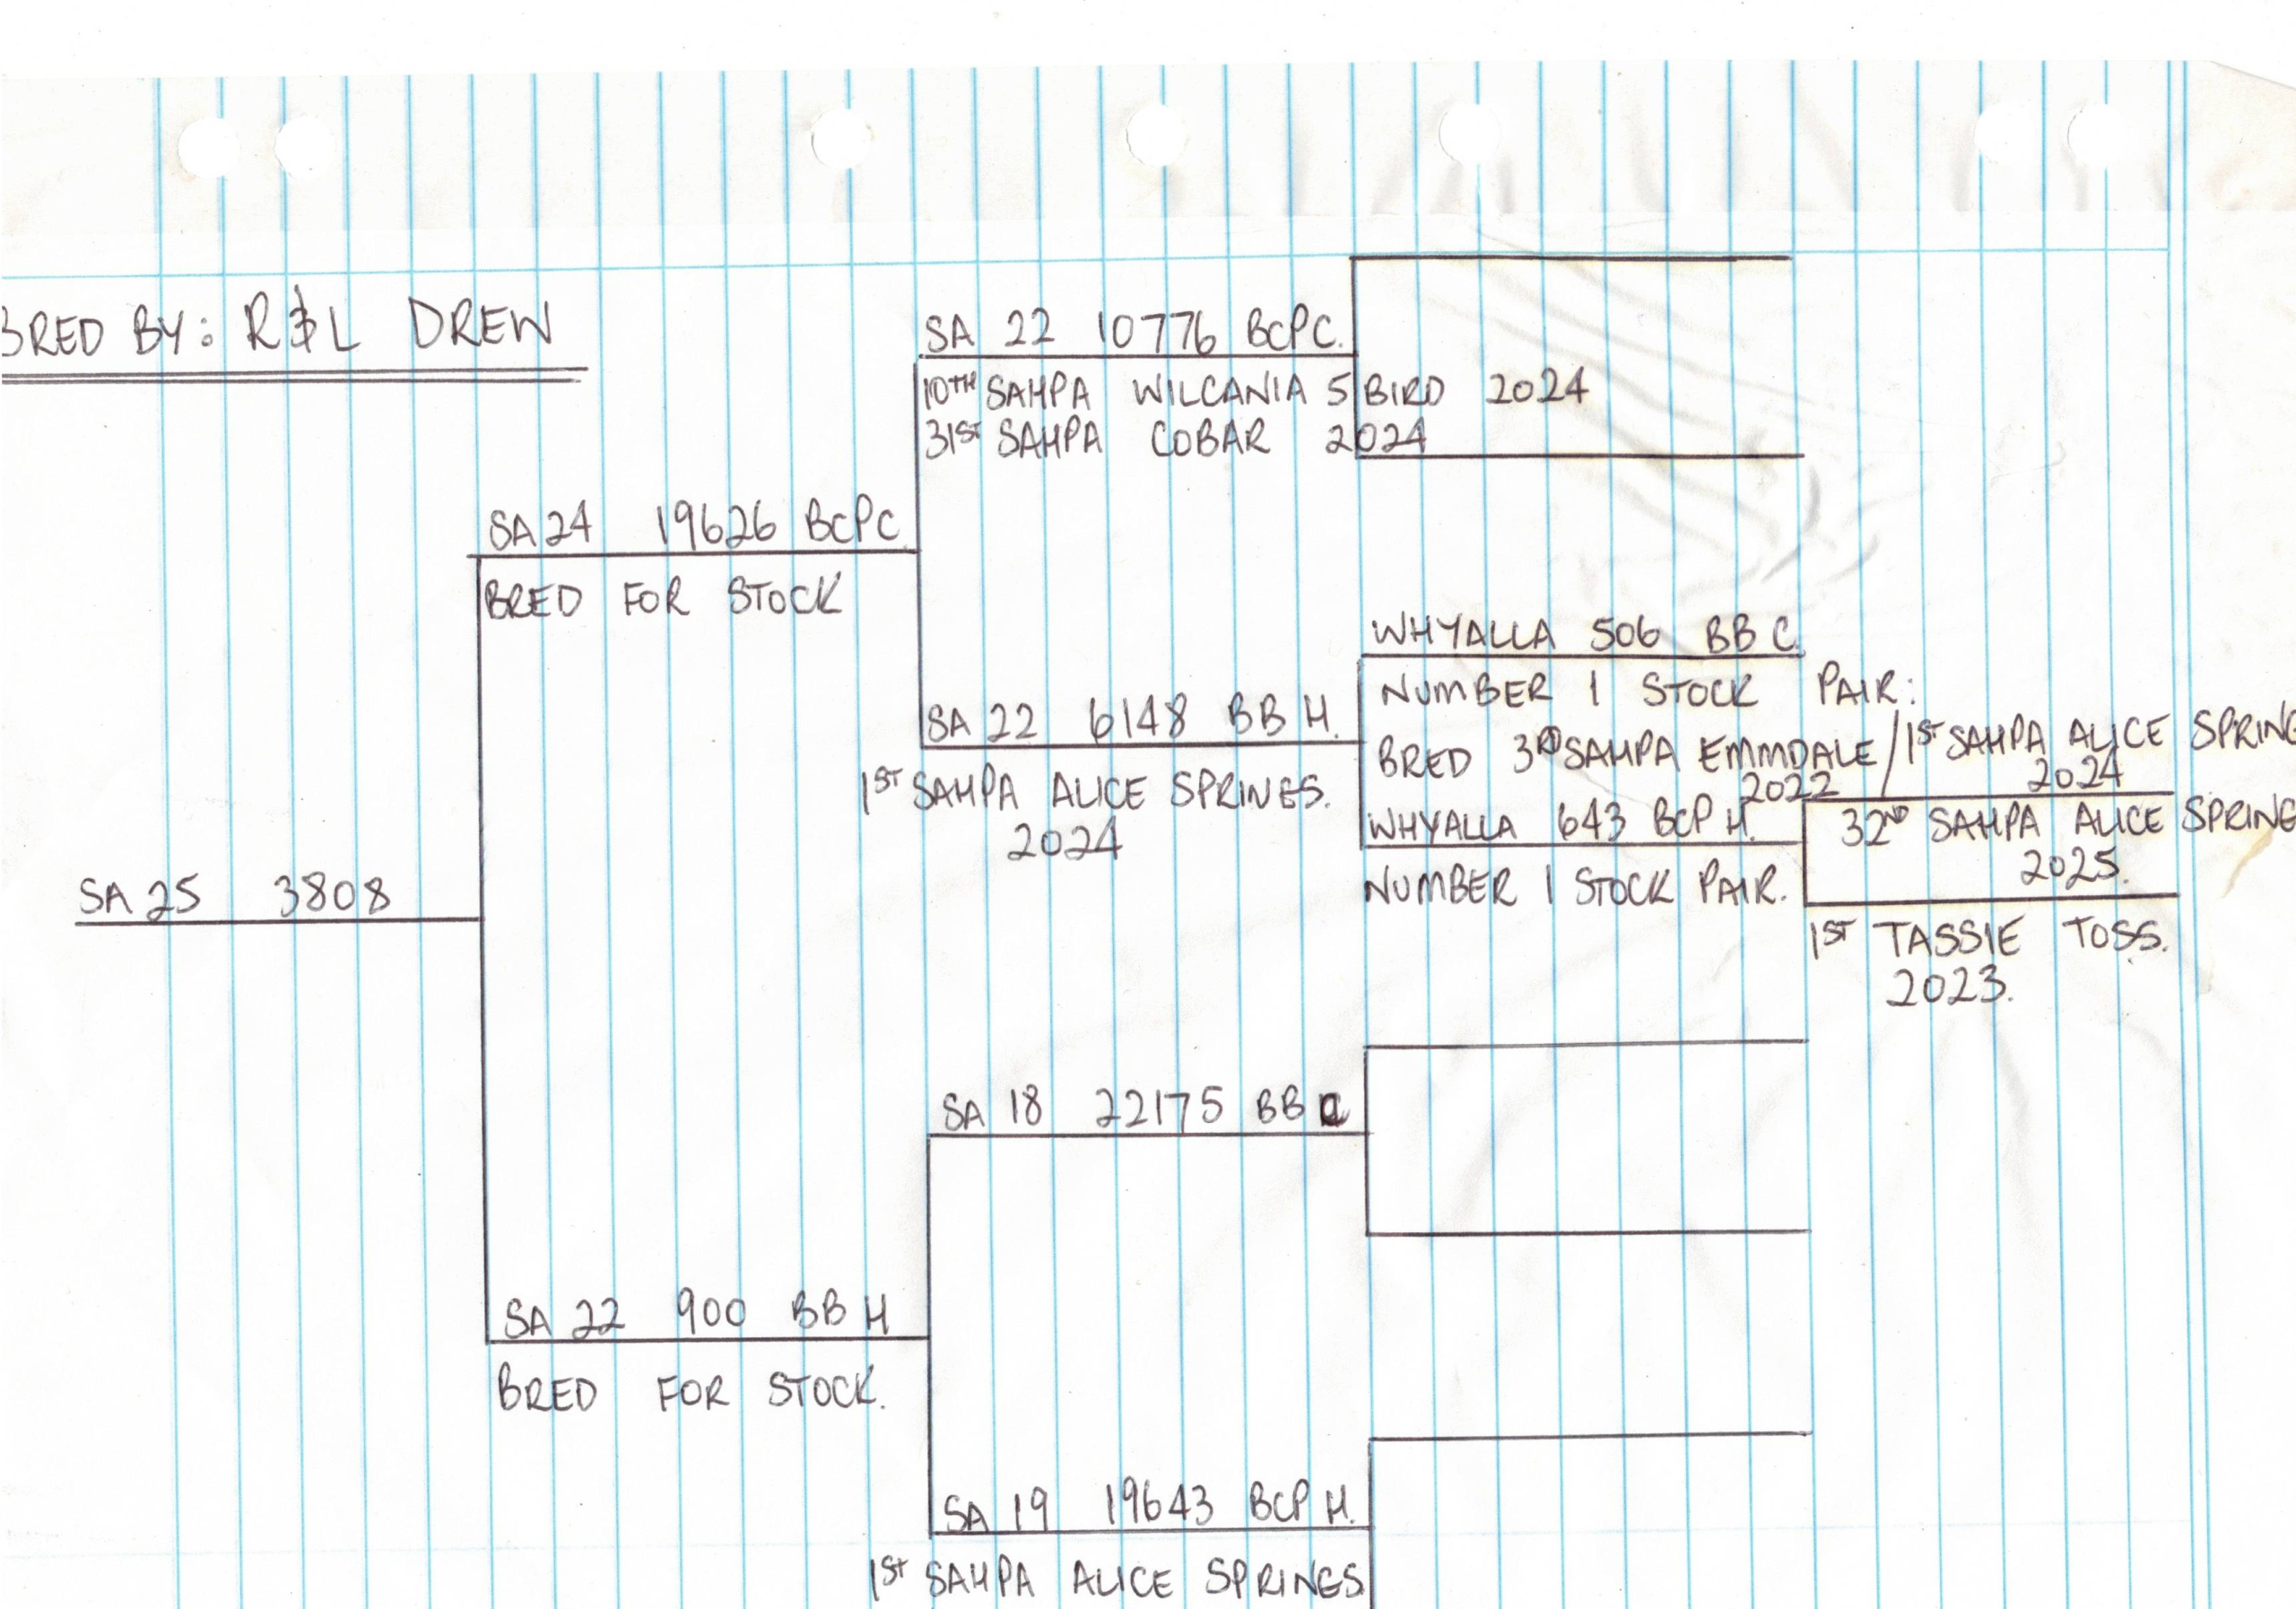 BRED BY: R & L DREW
SA 22 10776 BCPC.
10TH SAHPA WILCANIA 5 BIRD 2024
31ST SAHPA COBAR 2024
SA 24 19626 BCPC
BRED FOR STOCK
WHYALLA 506 BB C.
NUMBER 1 STOCK PAIR:
SA 22 6148 BB H.
BRED 3RD SAHPA EMMDALE / 1ST SAHPA ALICE SPRING
2022 2024
1ST SAHPA ALICE SPRINGS.
2024
WHYALLA 643 BCP H.
32ND SAHPA ALICE SPRING
2025.
NUMBER 1 STOCK PAIR.
SA 25 3808
1ST TASSIE TOSS.
2023.
SA 18 22175 BB C
SA 22 900 BB H
BRED FOR STOCK.
SA 19 19643 BCP H.
1ST SAHPA ALICE SPRINGS